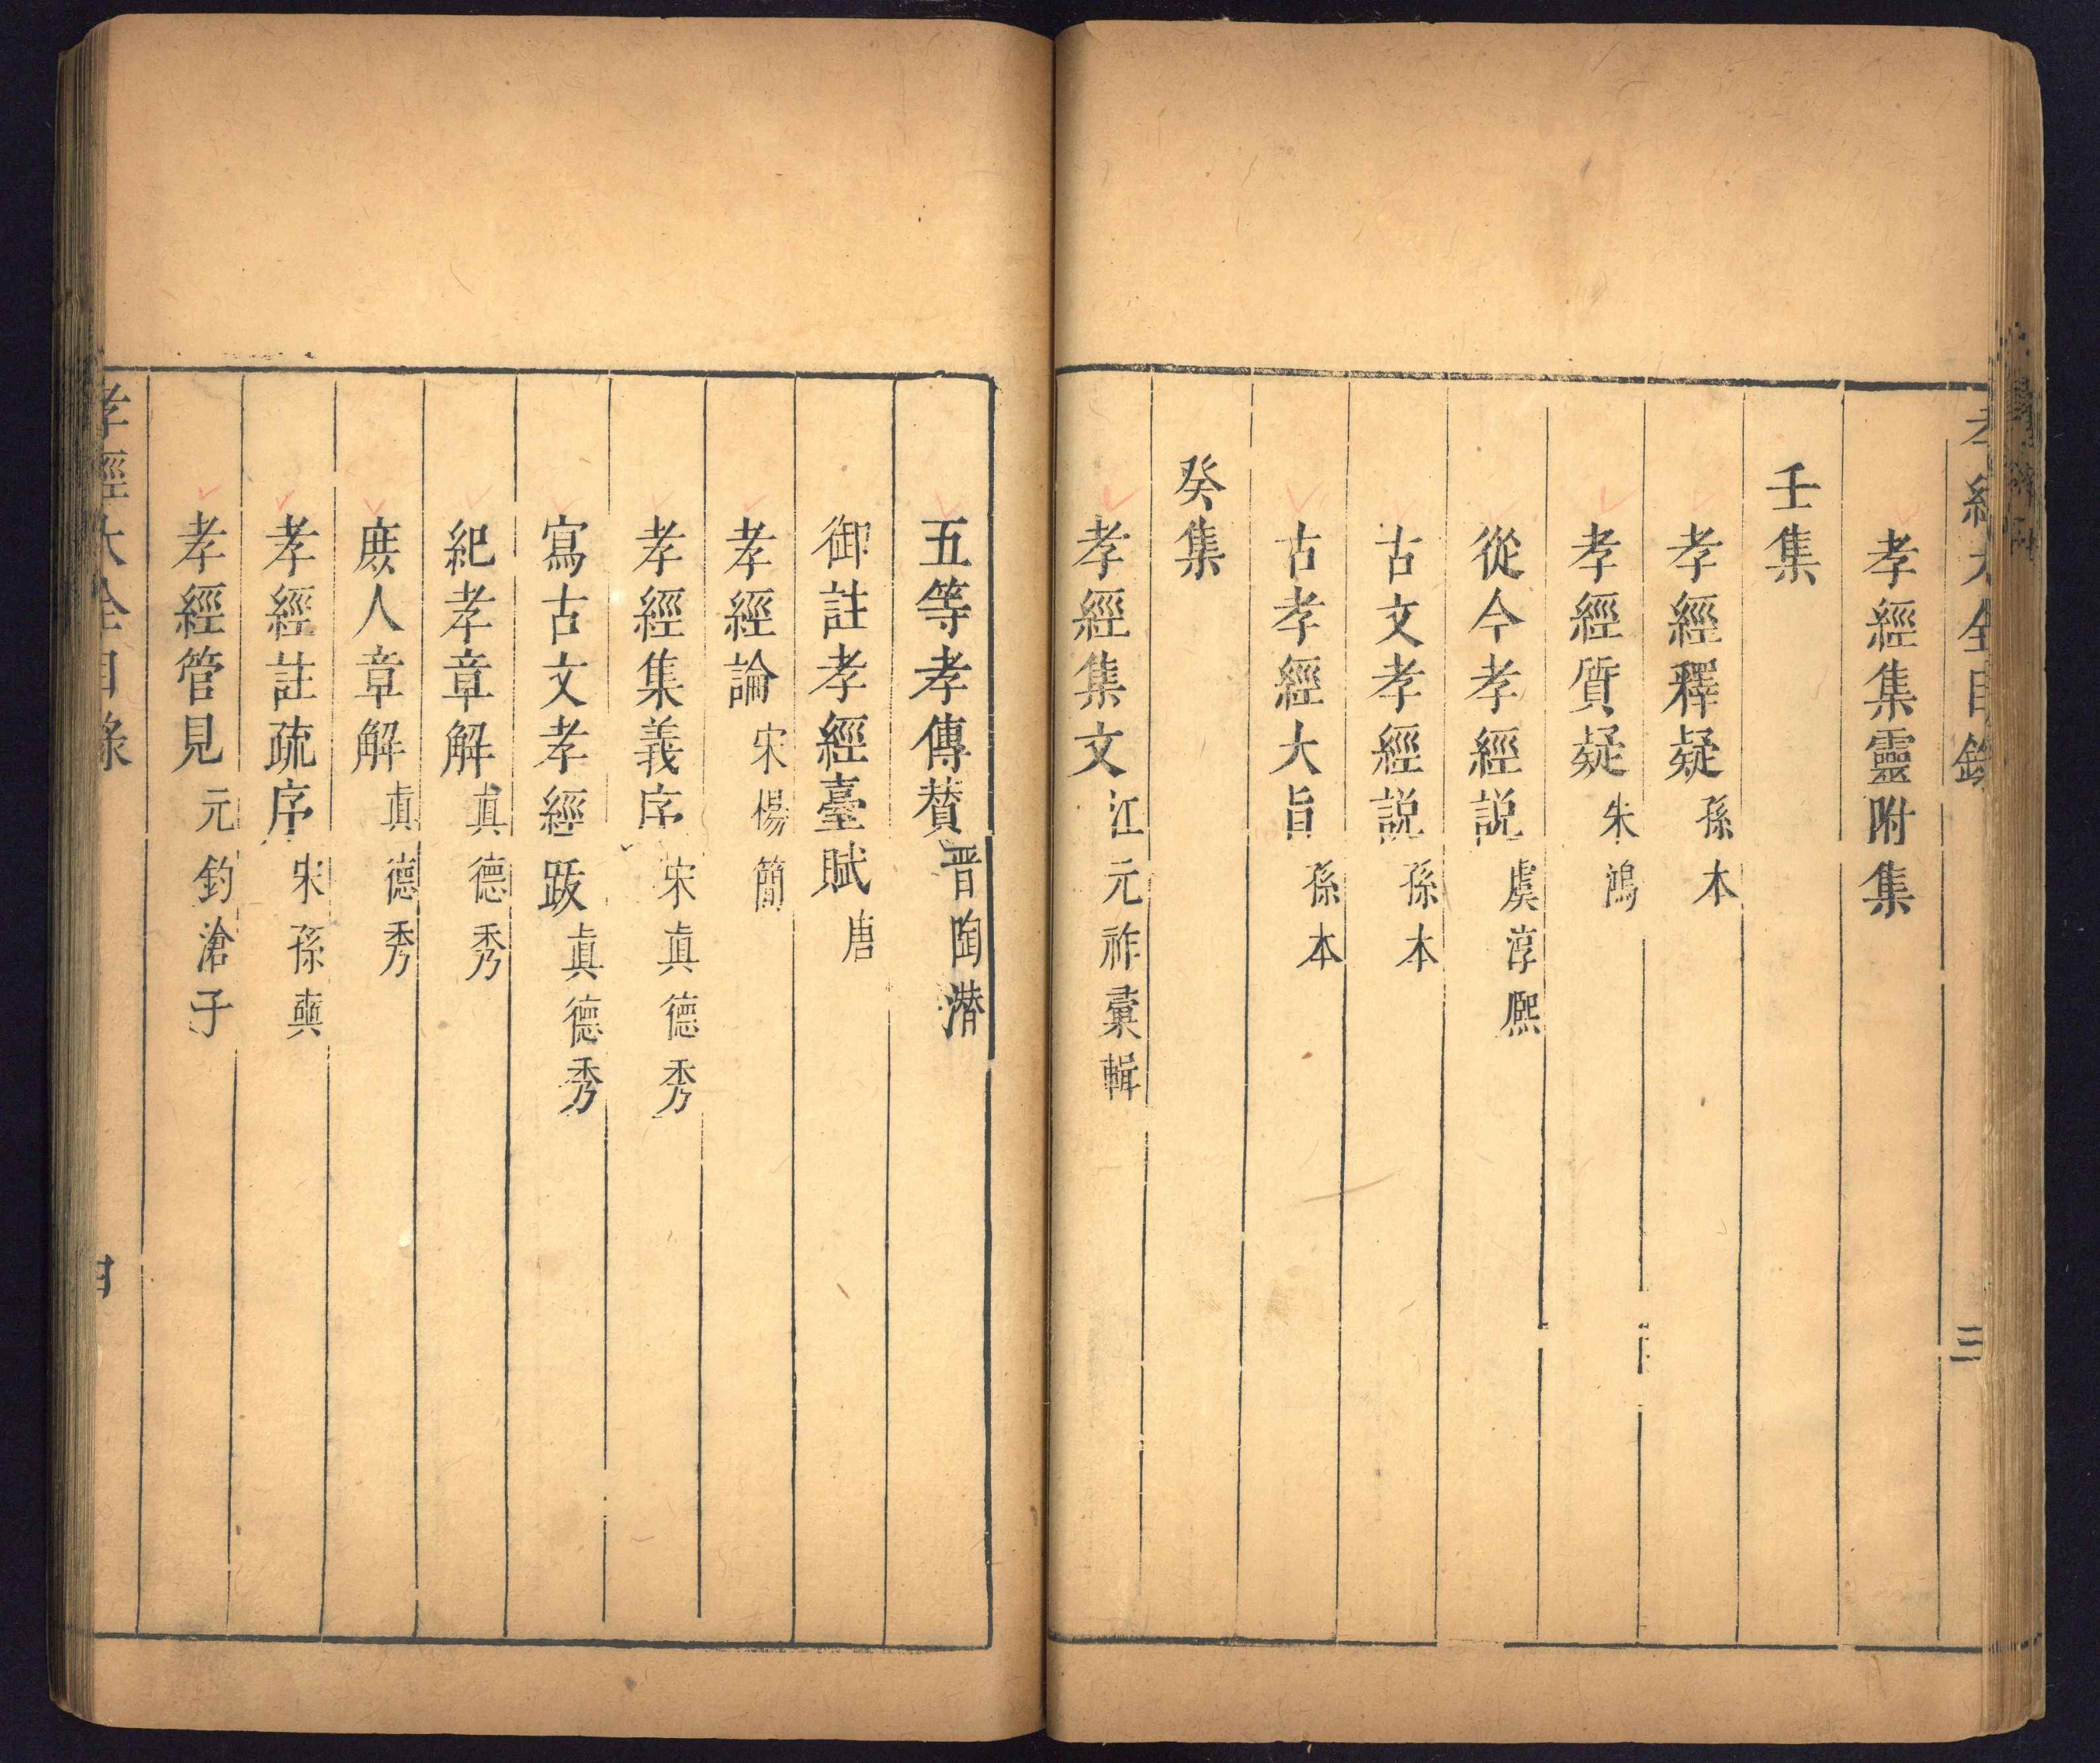 孝經大全目錄
三
孝經集靈附集
壬集
孝經釋疑 孫本
孝經質疑 朱鴻
從今孝經説 虞淳熈
古文孝經説 孫本
古孝經大旨 孫本
癸集
孝經集文 江元祚彚輯
五等孝傳賛 晋陶潜
御註孝經臺賦 唐
孝經論 宋楊簡
孝經集義序 宋眞德秀
寫古文孝經跋 眞德秀
紀孝章解 眞德秀
庻人章解 眞德秀
孝經註疏序 宋孫奭
孝經管見 元釣滄子
孝經大全目錄